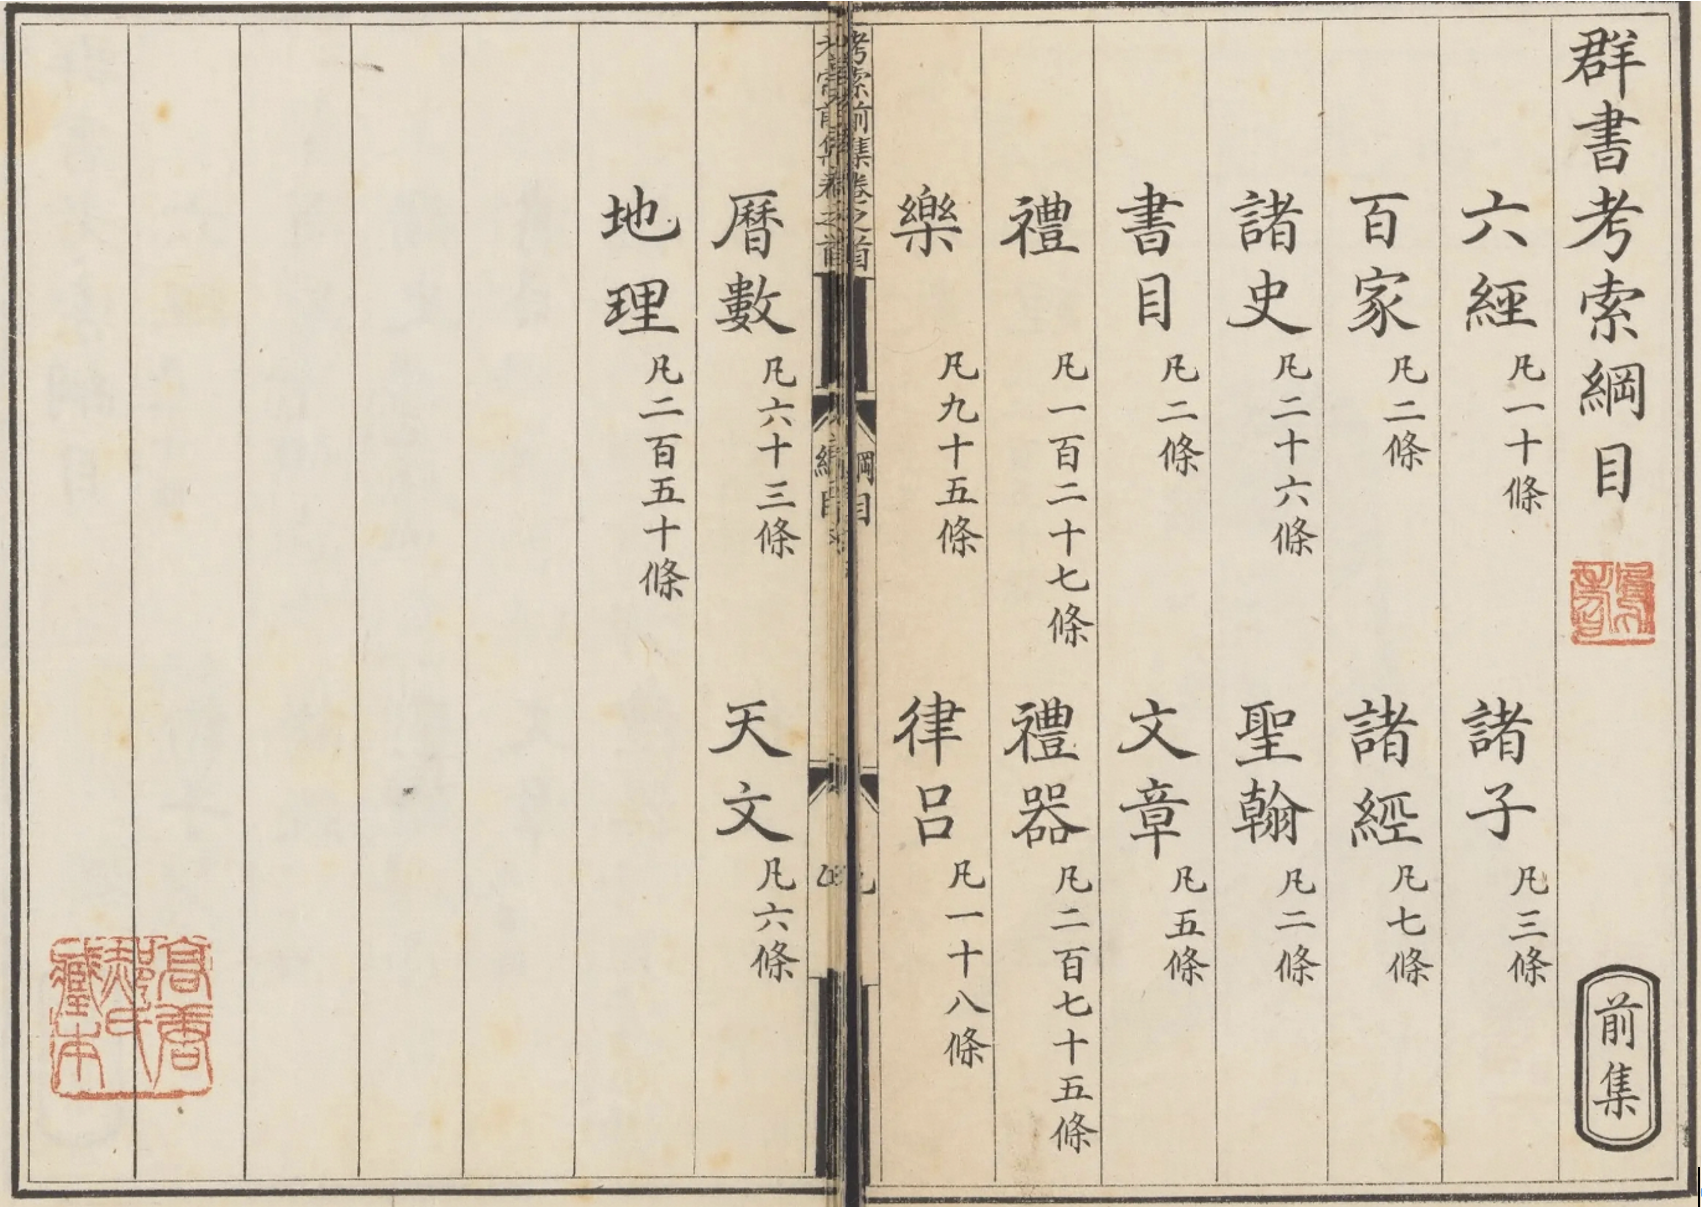 群書考索綱目
前集
六經 凡一十條 諸子 凡三條
百家 凡二條 諸經 凡七條
諸史 凡二十六條 聖翰 凡二條
書目 凡二條 文章 凡五條
禮 凡一百二十七條 禮器 凡二百七十五條
樂 凡九十五條 律呂 凡一十八條
考索前集卷之首 綱目
曆數 凡六十三條 天文 凡六條
地理 凡二百五十條